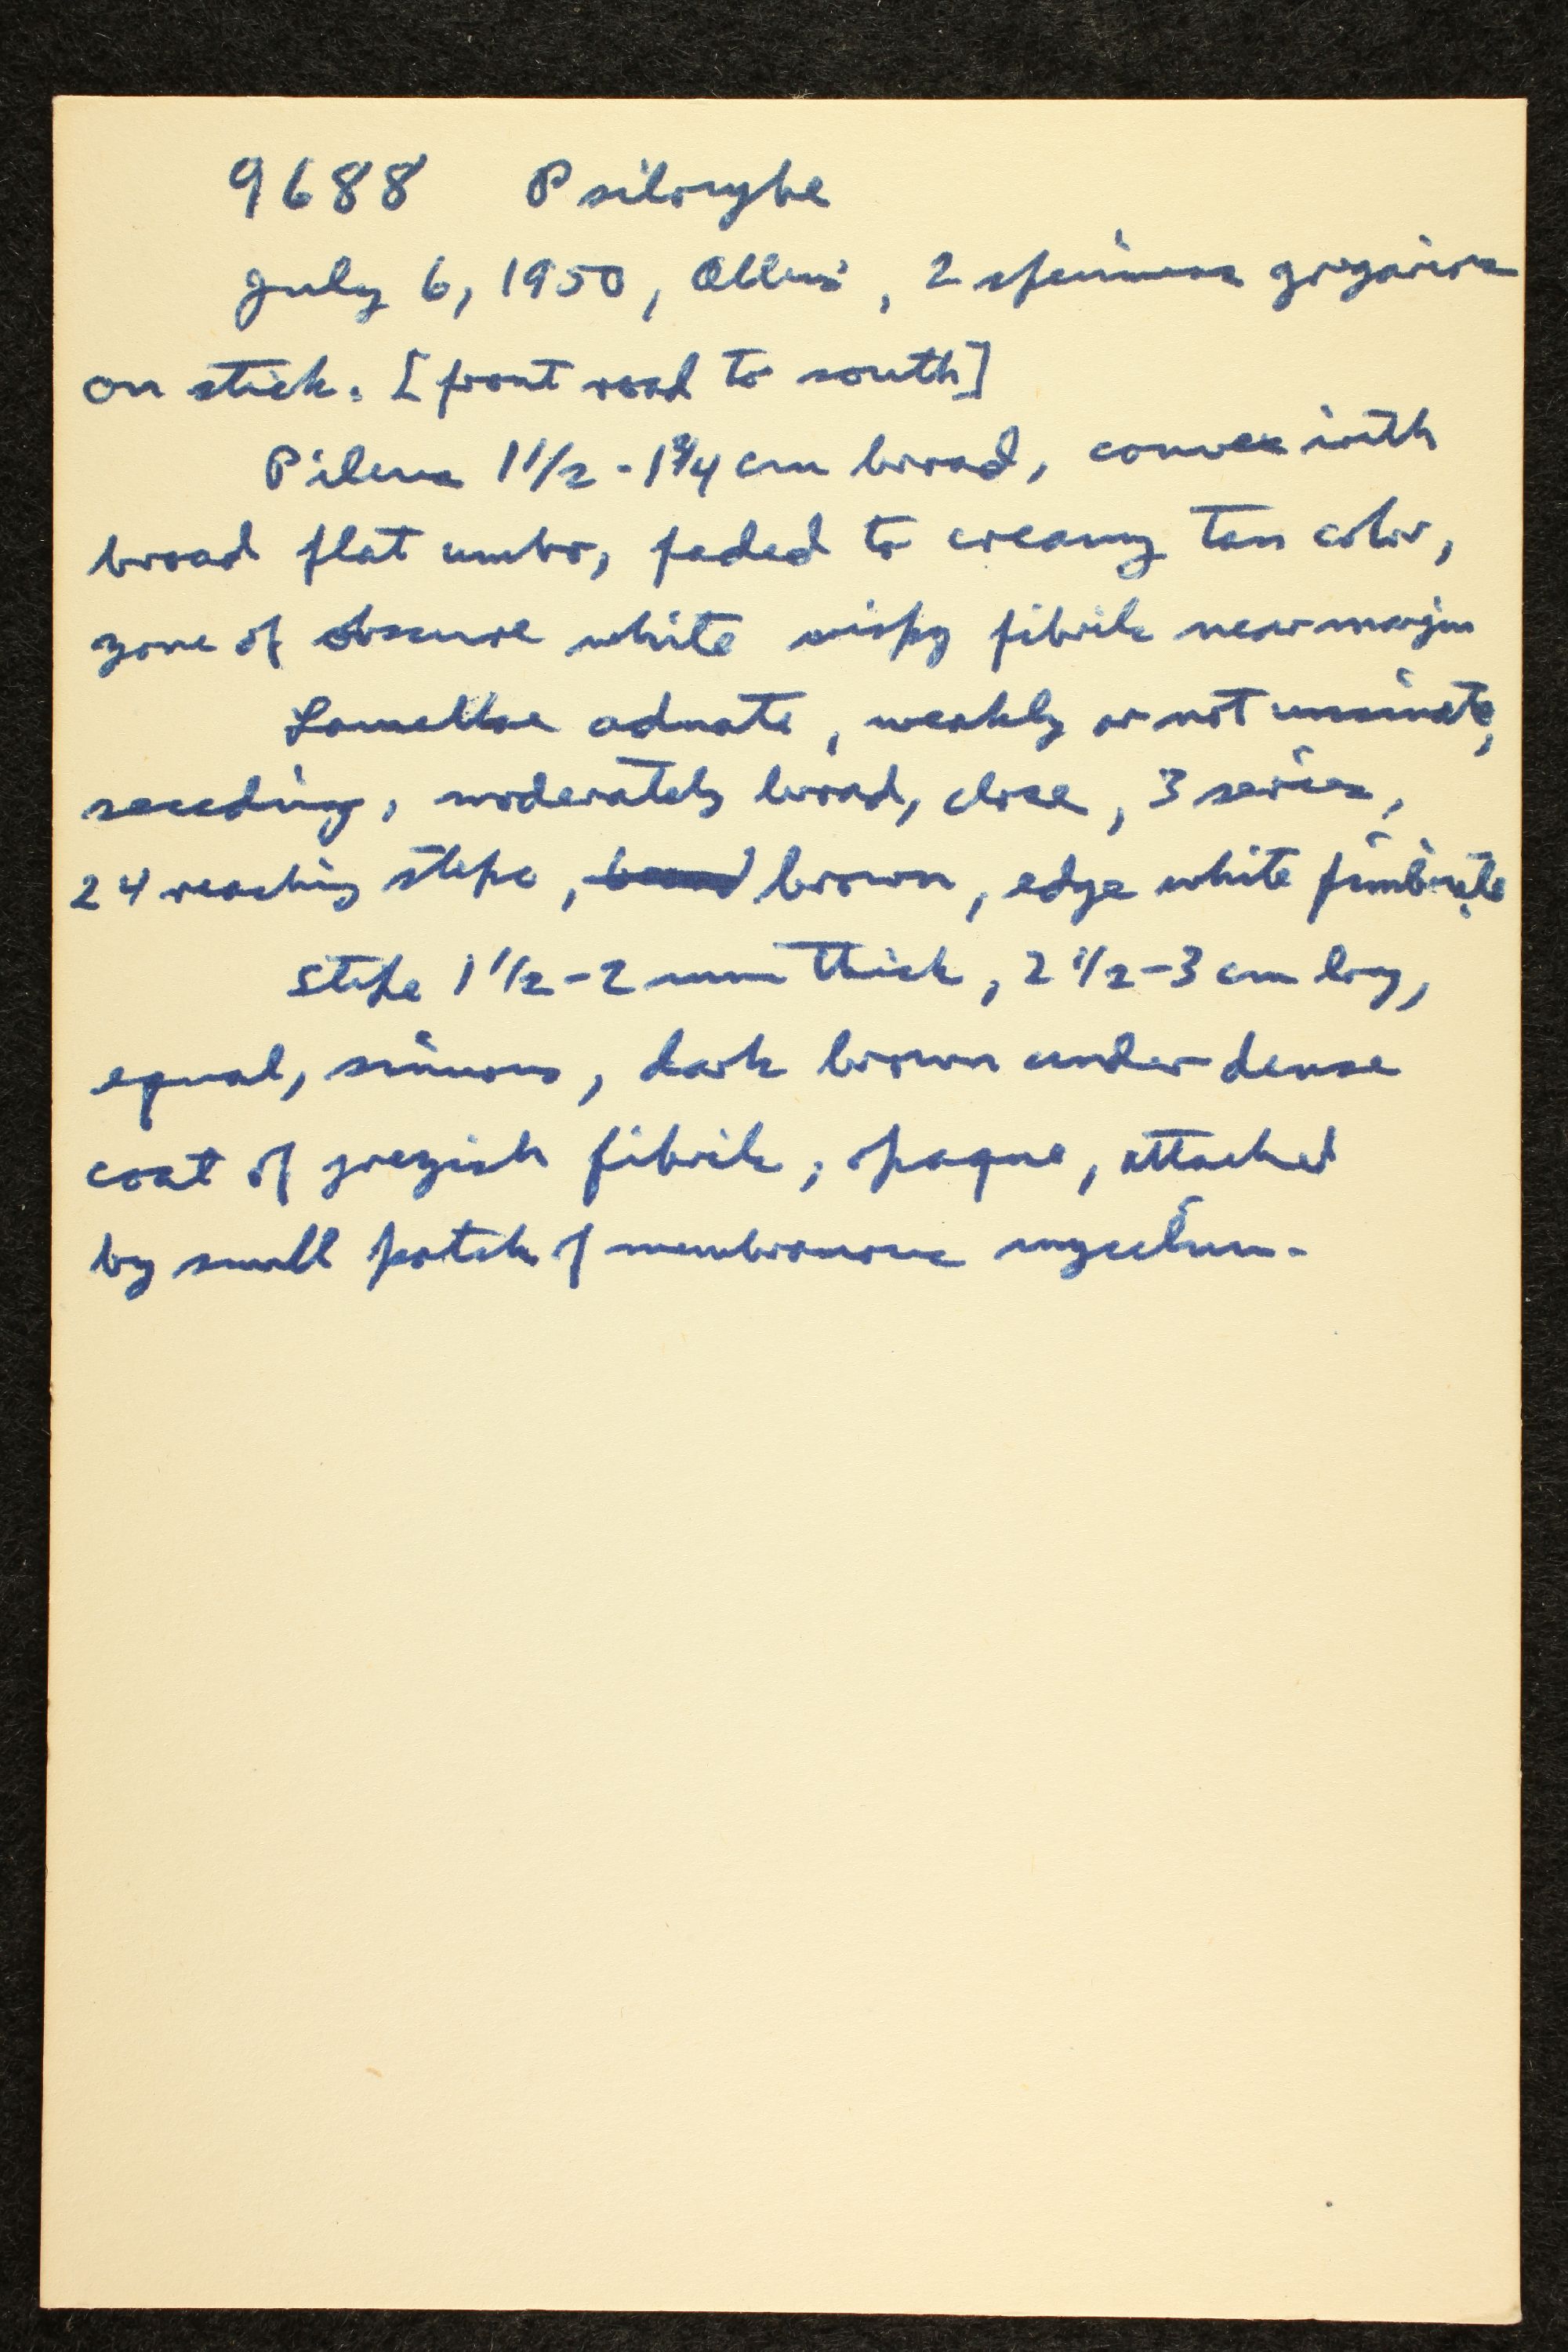 9688 Psilocybe
July 6, 1950, 2 specimens gregarious
on stick. [front road to south]
Pileus 1 1/2 - 1 3/4 cm broad, convex with
broad flat umbo, faded to creamy tan color,
zone of obscure white wispy fibrils near margin
Lamellae adnate, weakly or not uncinate,
seceding, moderately broad, close, 3 series,
24 reaching stipe, brown, edge white fimbriate
Stipe 1 1/2 - 2 mm thick, 2 1/2 - 3 cm long,
equal, sinuous, dark brown under dense
coat of greyish fibrils, opaque, attached
by small patch of membranous mycelium.